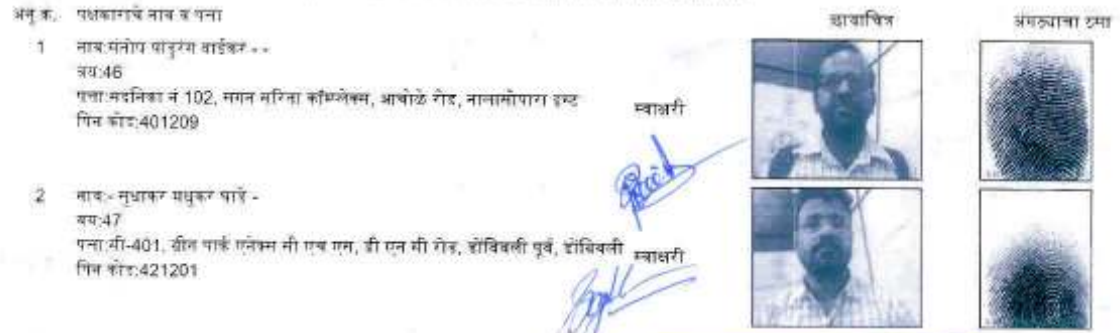 अनु क्र. पक्षकाराचे नाव व पत्ता छायाचित्र अंगठ्याचा ठसा
1 नाव:संतोष पांडुरंग वार्डकर - -
वय:46
पत्ता:सदनिका नं 102, मगन सरिता कॉम्प्लेक्स, आचोळे रोड, नालासोपारा इस्ट स्वाक्षरी
पिन कोड:401209
2 नाव:- सुधाकर मधुकर पाडे -
वय:47
पत्ता:सी-401, ग्रीन पार्क एनेक्स सी एच एस, डी एन सी रोड, डोंबिवली पूर्व, डोंबिवली स्वाक्षरी
पिन कोड:421201